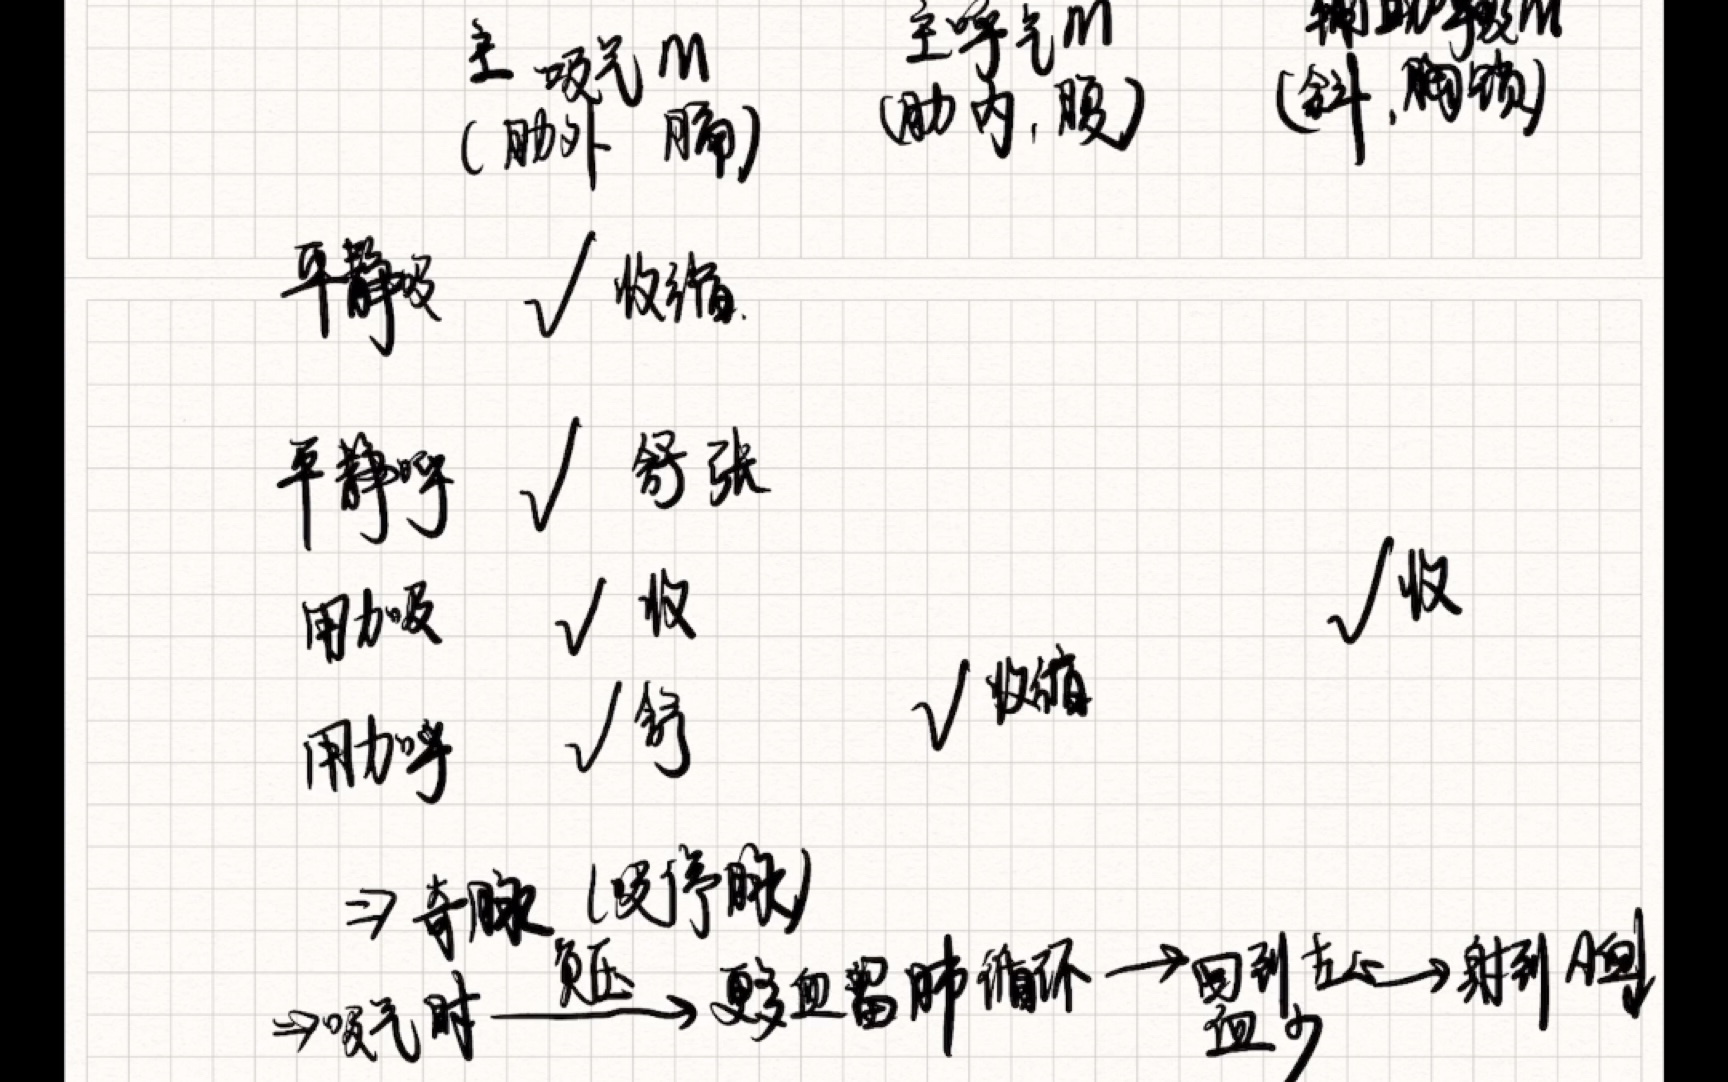 主吸气M 主呼气M 辅助呼吸M
(肋外 膈) (肋内,腹) (斜,胸锁)
平静吸 ✓ 收缩.
平静呼 ✓ 舒张
用力吸 ✓ 收 ✓ 收
用力呼 ✓ 舒 ✓ 收缩
⇒ 奇脉 (吸停脉)
负压
⇒吸气时 → 更多血留肺循环 → 回到左心 → 射到A血↓
血少